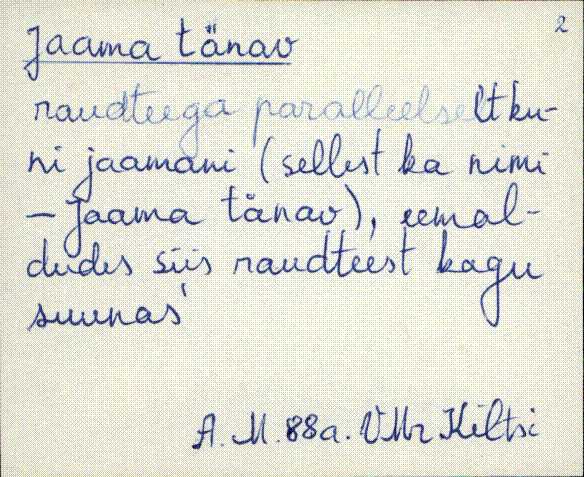 2
Jaama tänav
raudteega paralleelselt ku-
ni jaamani (sellest ka nimi
– Jaama tänav), eemal-
dudes siis raudteest kagu
suunas
A. M. 88a. VMr Kiltsi